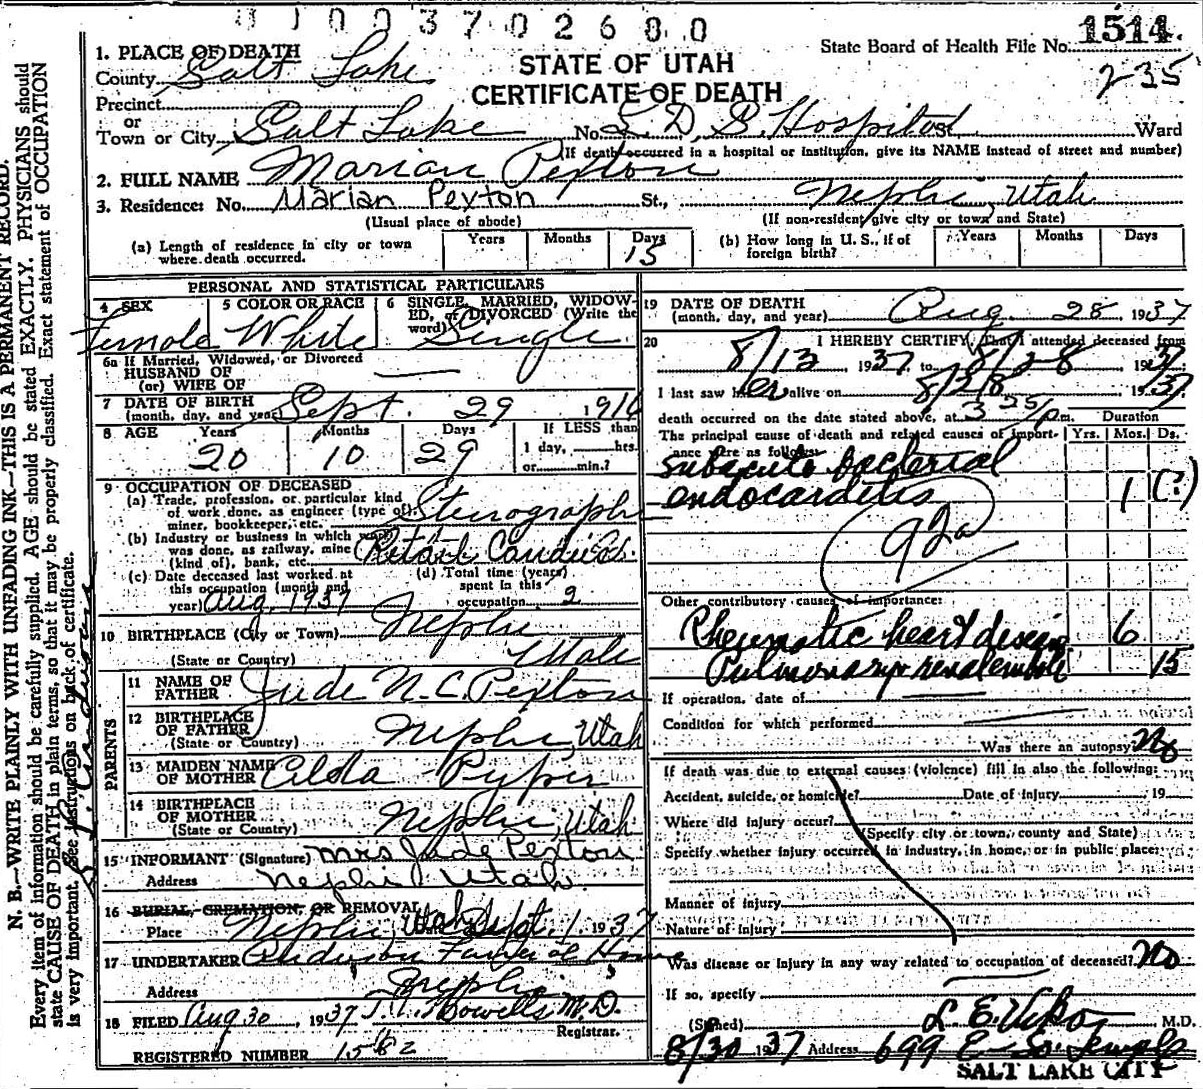 01003702680
1. PLACE OF DEATH
County Salt Lake
Precinct
or
Town or City Salt Lake No. L. D. S. Hospital St. Ward
STATE OF UTAH
CERTIFICATE OF DEATH
State Board of Health File No. 1514
235
(If death occurred in a hospital or institution, give its NAME instead of street and number)
2. FULL NAME Marian Pexton
3. Residence: No. Marian Pexton St., Nephi, Utah
(Usual place of abode) (If non-resident give city or town and State)
(a) Length of residence in city or town where death occurred. Years Months Days 15
(b) How long in U. S., if of foreign birth? Years Months Days
PERSONAL AND STATISTICAL PARTICULARS
4 SEX Female
5 COLOR OR RACE White
6 SINGLE, MARRIED, WIDOWED, or DIVORCED (Write the word) Single
6a If Married, Widowed, or Divorced
HUSBAND OF
(or) WIFE OF
7 DATE OF BIRTH
(month, day, and year) Sept. 29 1916
8 AGE Years 20 Months 10 Days 29 If LESS than
1 day, hrs.
or min.?
9 OCCUPATION OF DECEASED
(a) Trade, profession, or particular kind
of work done, as engineer (type of),
miner, bookkeeper, etc. Stenographer
(b) Industry or business in which work
was done, as railway, mine
(kind of), bank, etc.
(c) Date deceased last worked at
this occupation (month and
year) Aug, 1937
(d) Total time (years)
spent in this
occupation 2
10 BIRTHPLACE (City or Town) Nephi
(State or Country) Utah
PARENTS
11 NAME OF
FATHER Jude N. C. Pexton
12 BIRTHPLACE
OF FATHER
(State or Country) Nephi, Utah
13 MAIDEN NAME
OF MOTHER Alda Pyper
14 BIRTHPLACE
OF MOTHER
(State or Country) Nephi, Utah
15 INFORMANT (Signature) Mrs Jude Pexton
Address Nephi Utah
16 BURIAL, CREMATION, OR REMOVAL
Place Nephi, Utah Sept. 1 1937
17 UNDERTAKER Anderson Funeral Home
Address Nephi
18 FILED Aug 30, 1937 T. L. Howells M.D.
Registrar.
REGISTERED NUMBER 1582
19 DATE OF DEATH
(month, day, and year) Aug. 28, 1937
20 I HEREBY CERTIFY, That I attended deceased from
8/13 1937 to 8/28 1937
I last saw her alive on 8/28 1937
death occurred on the date stated above, at 3 25/p m. Duration
The principal cause of death and related causes of importance were as follows: Yrs. Mos. Ds.
subacute bacterial
endocarditis 1 (?)
92a
Other contributory causes of importance:
Rheumatic heart disease 6
Pulmonary & renal emboli 15
If operation, date of
Condition for which performed
Was there an autopsy? No
If death was due to external causes (violence) fill in also the following:
Accident, suicide, or homicide? Date of injury 19
Where did injury occur?
(Specify city or town, county and State)
Specify whether injury occurred in industry, in home, or in public place:
Manner of injury
Nature of injury
Was disease or injury in any way related to occupation of deceased? No
If so, specify
(Signed) L. E. Viko, M.D.
8/30 1937 Address 699 E So. Temple
SALT LAKE CITY
N. B.—WRITE PLAINLY WITH UNFADING INK—THIS IS A PERMANENT RECORD.
Every item of information should be carefully supplied. AGE should be stated EXACTLY. PHYSICIANS should
state CAUSE OF DEATH in plain terms, so that it may be properly classified. Exact statement of OCCUPATION
is very important. See instructions on back of certificate.